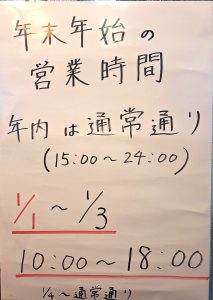 年末年始の
営業時間
年内は通常通り
(15:00~24:00)
1/1~1/3
10:00~18:00
1/4~通常通り